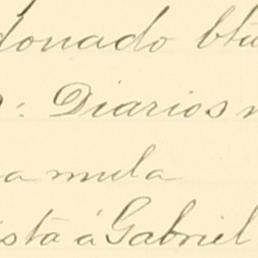 donado
: Diarios
a mula
sta á Gabriel